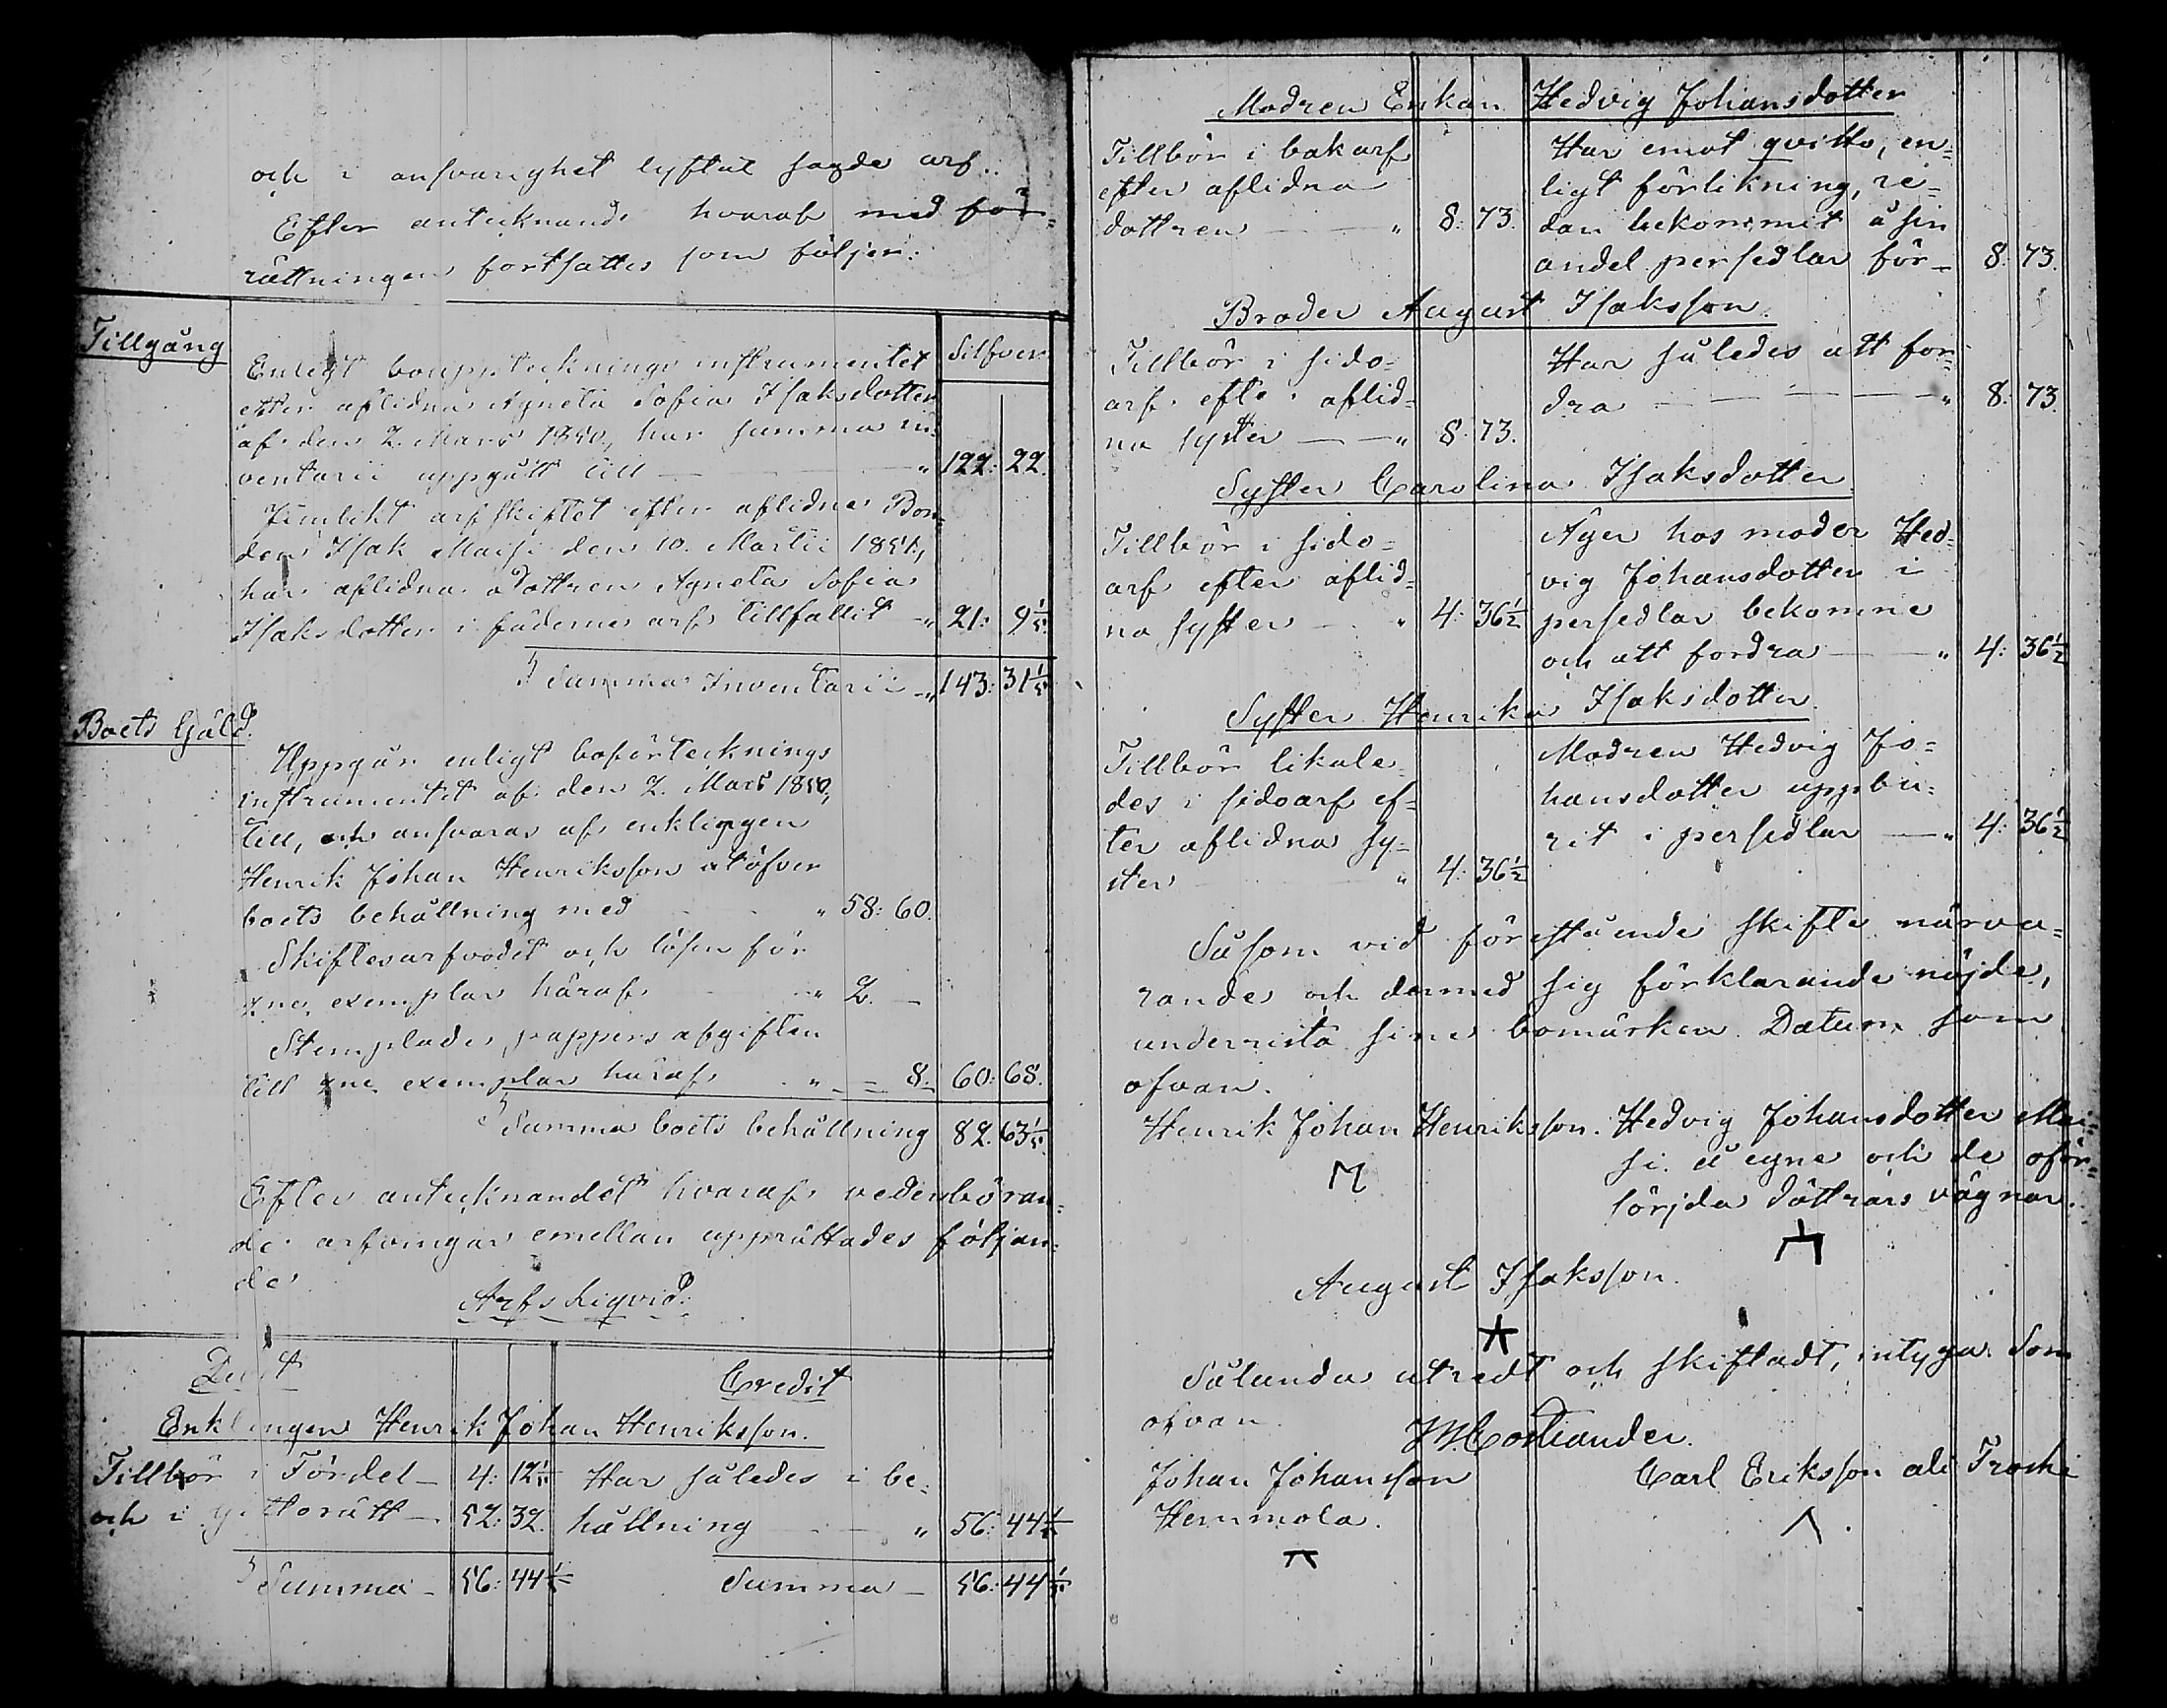 och i ansvarighet lyftat sagde arf.
Efter antecknande hvaraf med för=
rättningen fortsattes som följer:
Tillgång
Silfver
Enligt bouppteckningsinstrumentet
efter aflidna Agneta Sofia Isaksdotter
af den 2. Mars 1850, har summa in=
ventarii uppgått till — " 122: 22.
Jemlikt arfskiftet efter aflidne Bon=
den Isak Maisi den 10. Martii 1851,
har aflidna dottren Agneta Sofia
Isaksdotter i fädernearf tillfallit — " 21: 9 1/5.
Summa Inventarii — " 143: 31 1/5
Boets Gäld.
Uppgår enligt boförtecknings
instrumentet af den 2. Mars 1850,
till, och ansvaras af enklingen
Henrik Johan Henriksson utöfver
boets behållning med " 58: 60.
Skiftesarfvodet och lösen för
2ne exemplar häraf " 2. —
Stemplade pappersafgiften
till 2ne exemplar häraf " — = 8. 60: 68.
Summa boets behållning 82. 63 1/5.
Efter antecknandet hvaraf vederböran=
de arfvingar emellan upprättades följan=
de
Arfs Liqvid:
Debet
Credit
Enklingen Henrik Johan Henriksson.
Tillbör i Fördel — 4: 12 1/5
och i giftorätt — 52: 32.
Har således i be=
hållning — " 56: 44 1/5
Summa — 56: 44 1/5
Summa — 56: 44 1/5
Modren Enkan Hedvig Johansdotter
Tillbör i bakarf
efter aflidna
dottren — " 8: 73.
Har emot qvitto, en=
ligt förlikning, re=
dan bekommit å sin
andel persedlar för — 8: 73.
Broder August Isaksson.
Tillbör i sido=
arf efter aflid=
na syster — " 8: 73.
Har således att for=
dra — " 8: 73.
Syster Carolina Isaksdotter.
Tillbör i sido=
arf efter aflid=
na syster — " 4: 36 1/2
Äger hos moder Hed=
vig Johansdotter i
persedlar bekomne
och att fordra — " 4: 36 1/2
Syster Henrika Isaksdotter.
Tillbör likale=
des i sidoarf ef=
ter aflidna sy=
ster " 4: 36 1/2
Modren Hedvig Jo=
hansdotter uppbu=
rit i persedlar — " 4: 36 1/2
Såsom vid förestående skifte närva=
rande och dermed sig förklarande nöjde,
underrita sine bomärken Datum som
ofvan.
Henrik Johan Henriksson. Hedvig Johansdotter Mai=
si å egne och de oför=
sörjda döttrars vägnar.
August Isaksson.
Sålunda utredt och skiftadt, intyga. Som
ofvan.
Johan Johansson
Hemmola.
Carl Eriksson ali